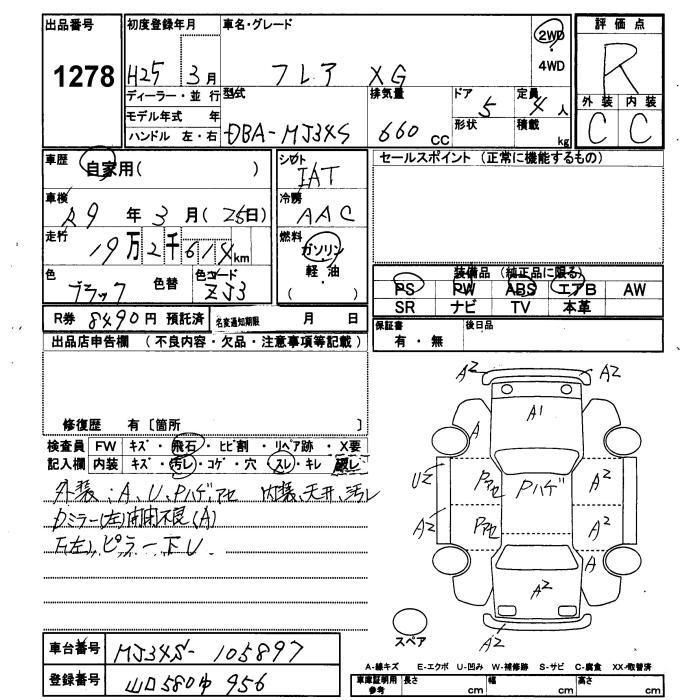 出品番号 初度登録年月 車名・グレード 2WD 評価点
1278 H25 3月 フレア XG 4WD R
ディーラー・並行 型式 排気量 ドア 5 定員 4人 外装 内装
モデル年式 年 DBA-MJ34S 660cc 形状 積載 kg C C
ハンドル 左・右
車歴 自家用( ) シフト IAT セールスポイント (正常に機能するもの)
車検 R9年3月(25日) 冷房 AAC
走行 19万2千614km 燃料 ガソリン・軽油 ( )
色 ブラック 色替 色コード ZJ3
装備品 (純正品に限る)
PS PW ABS エアB AW
SR ナビ TV 本革
R券 8490円 預託済 名変通知期限 月 日
保証書 有・無 後日品
出品店申告欄 (不良内容・欠品・注意事項等記載)
修復歴 有〔箇所 〕
検査員 FW キズ・飛石・ヒビ割・リペア跡・X要
記入欄 内装 キズ・汚レ・コゲ・穴・スレ・キレ・破レ
外装:A、U、Pハゲ、アセ 内装、天井、汚レ
Dミラー(左)開閉不良(A)
F(左)ピラー下U
A2 A2
A A1
U2 Pアセ Pハゲ A2
A2 Pアセ A2
A
A2
A2
スペア
車台番号 MJ34S-105897
登録番号 山口580ゆ956
A-線キズ E-エクボ U-凹み W-補修跡 S-サビ C-腐食 XX-取替済
車庫証明用参考 長さ cm 幅 cm 高さ cm